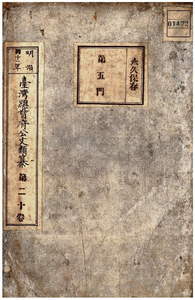 永久保存
第五門
明治
臺灣總督府公文類纂
第二十卷